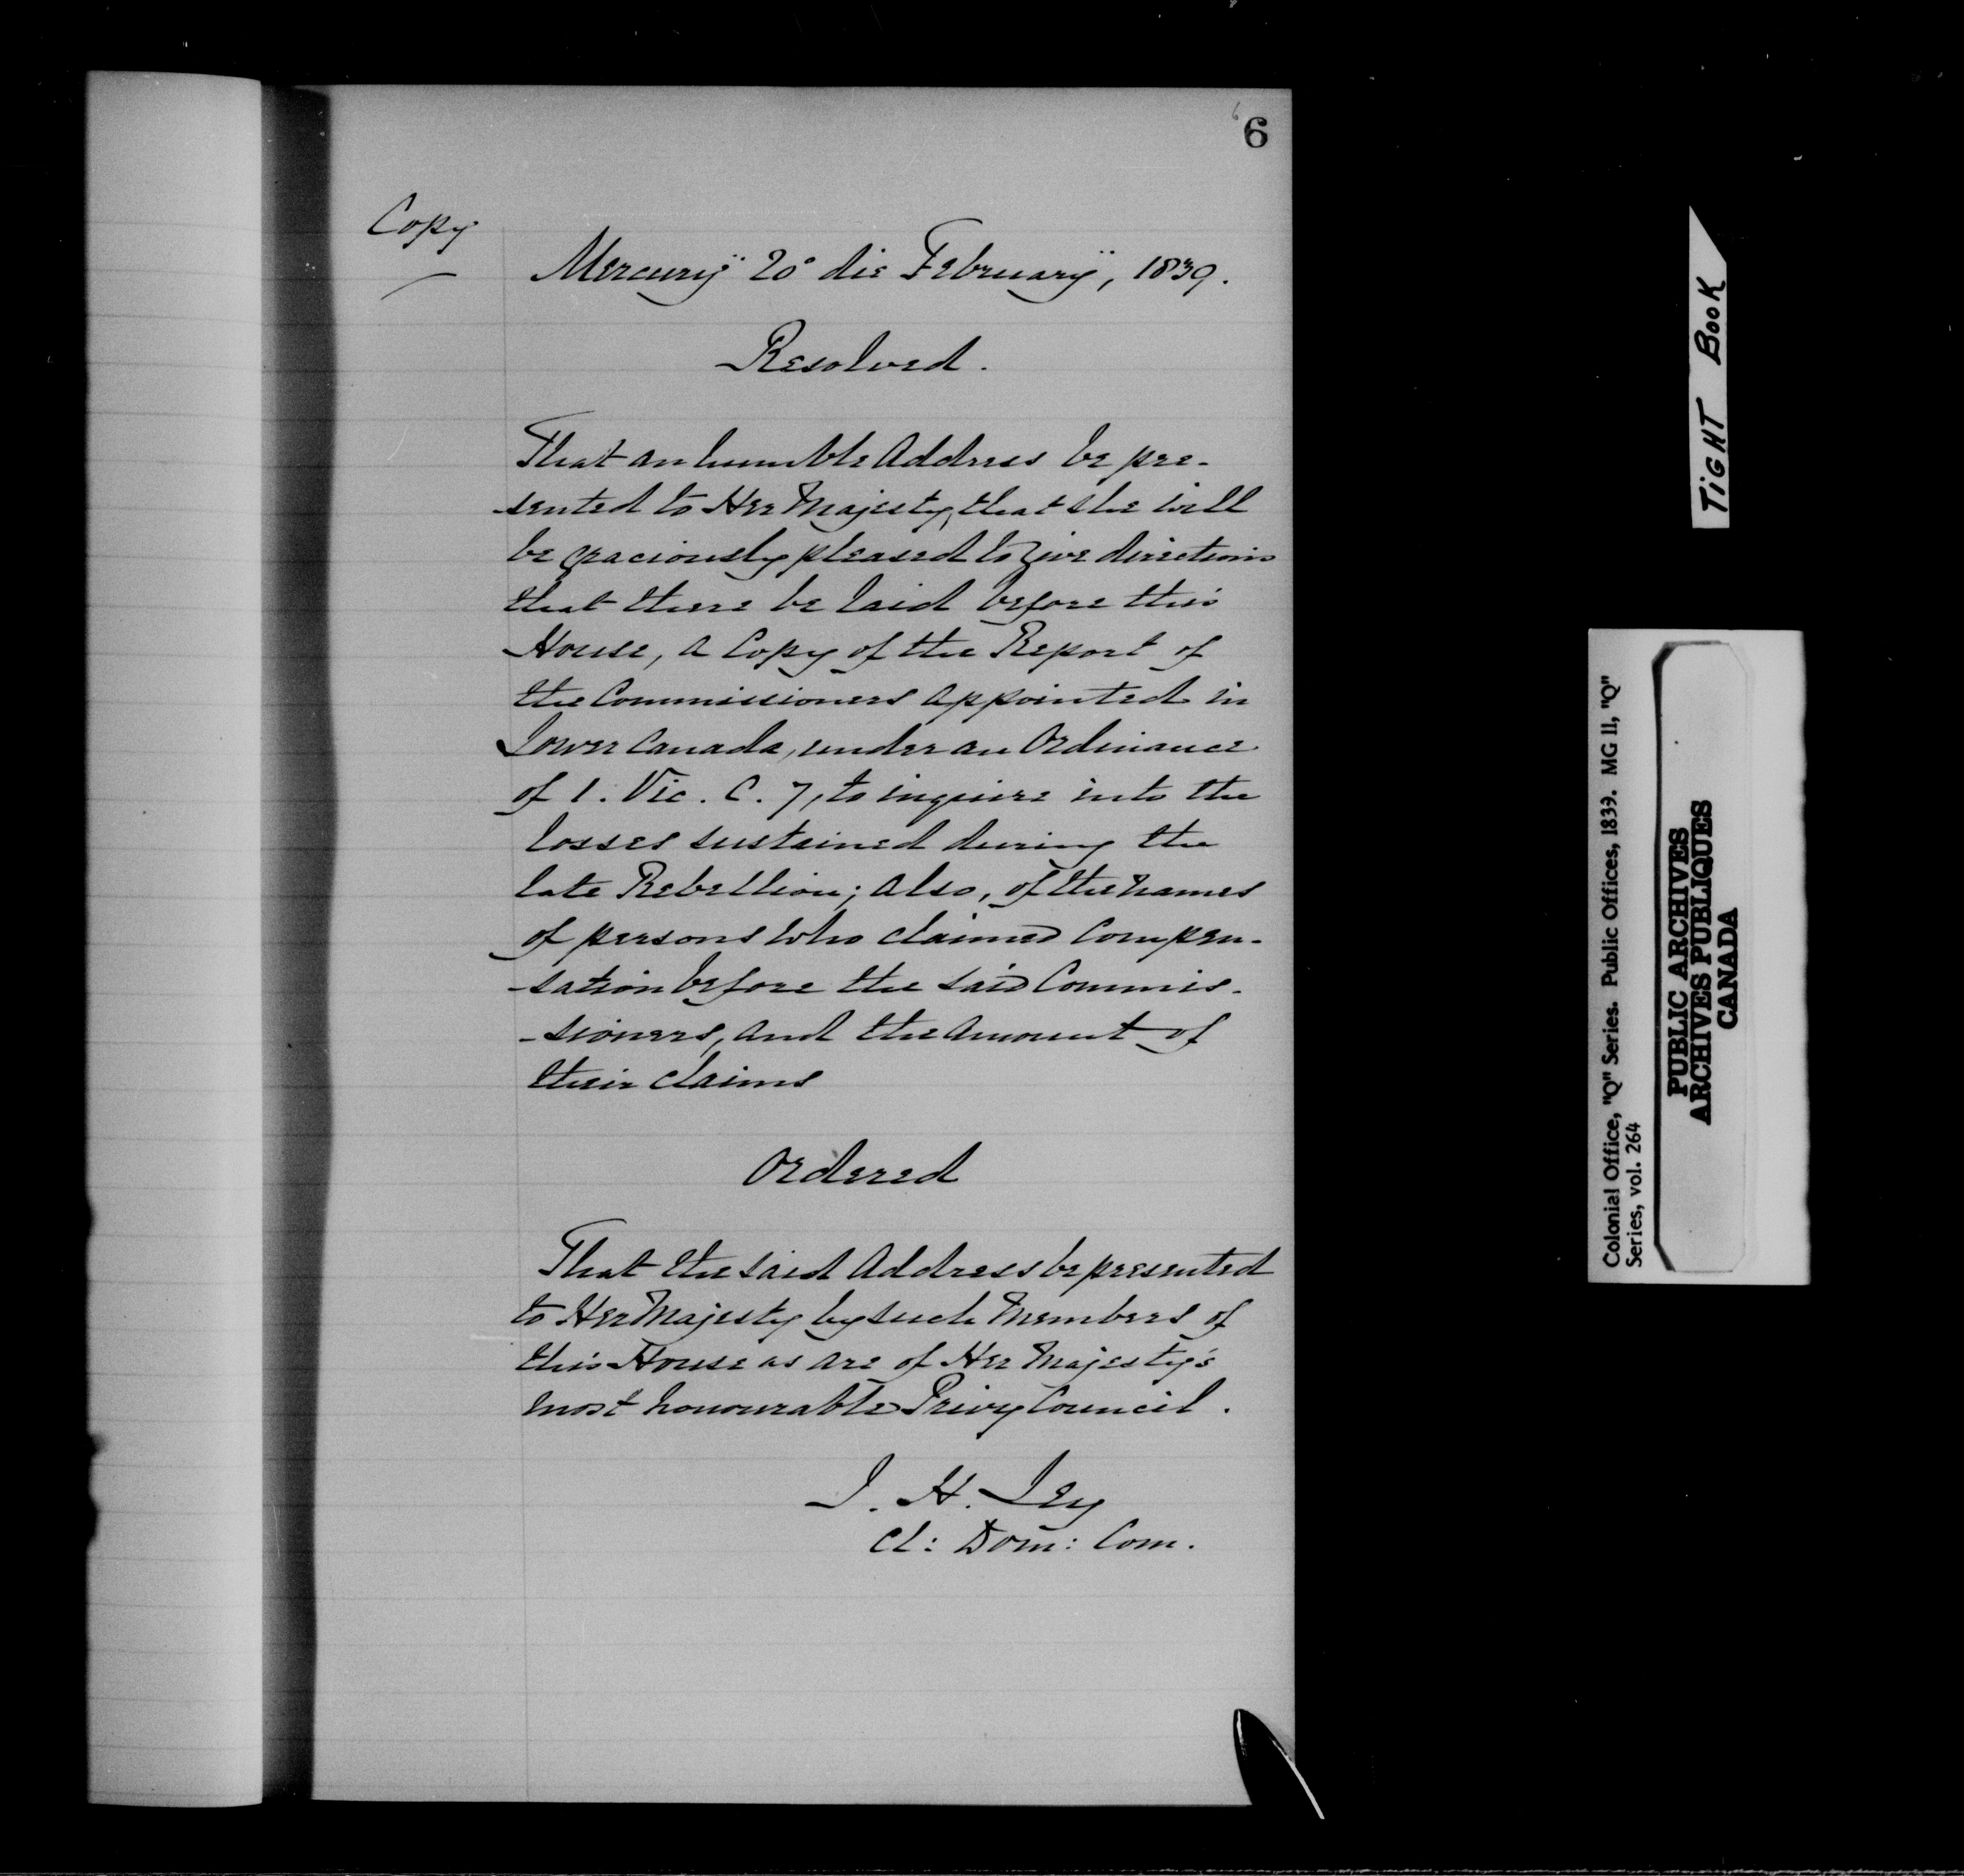 6
6
Copy
Mercurÿ 20° die Februarÿ, 1839.
Resolved.
That an humble Address be pre-
sented to Her Majesty, that she will
be graciously pleased to give directions
that there be laid before this
House, a Copy of the Report of
the Commissioners appointed in
Lower Canada, under an Ordinance
of 1. Vic. C. 7, to inquire into the
losses sustained during the
late Rebellion; also, of the names
of persons who claimed Compen-
-sation before the said Commis-
-sioners, and the amount of
their claims
Ordered
That the said Address be presented
to Her Majesty by such Members of
this House as are of Her Majesty's
most honourable Privy Council.
J. H. Ley
Cl: Dom: Com.
TIGHT BOOK
Colonial Office, "Q" Series. Public Offices, 1839. MG 11, "Q"
Series, vol. 264
PUBLIC ARCHIVES
ARCHIVES PUBLIQUES
CANADA